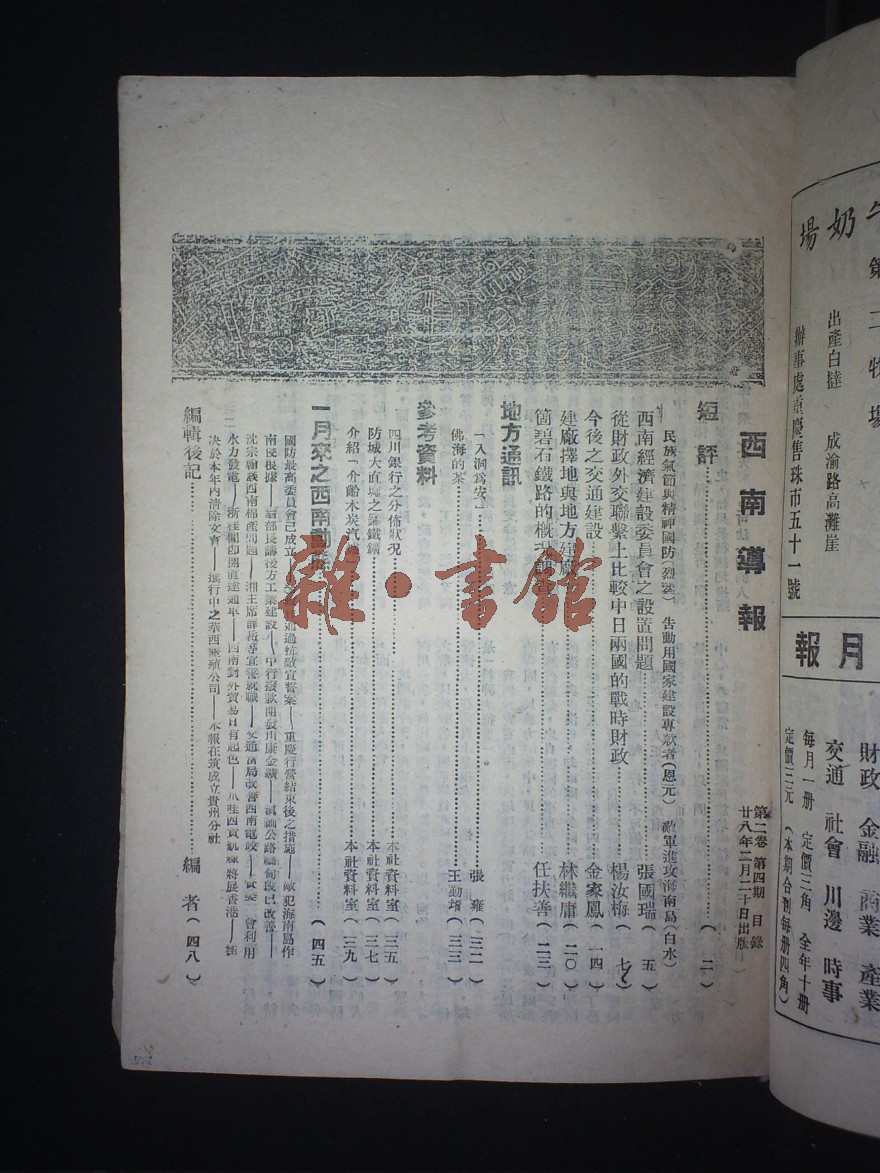 西南導報
第二卷 第四期 目錄
廿八年二月二十日出版
短評……(二)
民族氣節與精神國防(烈裳) 告動用國家建設專款者(恩元) 敵軍進攻海南島(白水)
西南經濟建設委員會之設置問題……張國瑞(五)
從財政外交聯繫上比較中日兩國的戰時財政……楊汝梅(七)
今後之交通建設……金家鳳(一四)
建廠擇地與地方建廠……林繼庸(二〇)
箇碧石鐵路的概況調查……任扶善(二三)
地方通訊
「入洞為安」……張雍(三二)
佛海的茶……王勤堉(三三)
參考資料
四川銀行之分佈狀況……本社資料室(三五)
防城大直墟之鐵礦……本社資料室(三七)
介紹「介齡木炭汽……本社資料室(三九)
一月來之西南動態……(四五)
國防最高委員會已成立——通過抗敵宣誓案——重慶行營結束後之措施——敵犯海南島作
南侵根據——翁部長講後方工業建設——中行撥款開發川康金礦——滇緬公路緬甸段已改善——
沈宗瀚談西南棉產問題——湘主席薛岳等宣誓就職——交通當局改善西南電政——會利用
水力發電——開直達通車——西南對外貿易日有起色——將展香港——
決於本年內清除文盲——進行中之華西墾殖公司——本報在筑成立貴州分社
編輯後記……編者(四八)
奶場
第二牧場
出產白撻 成渝路高灘崖
辦事處重慶售珠市五十一號
月報
財政 金融 商業 產業
交通 社會 川邊 時事
每月一冊 定價三角 全年十冊
定價三元(本期合刊每冊四角)
雜·書館